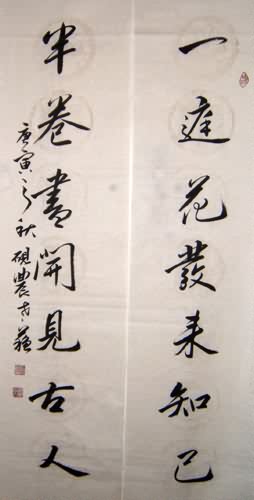 一庭花發來知己
半卷書開見古人
庚寅之秋硯農